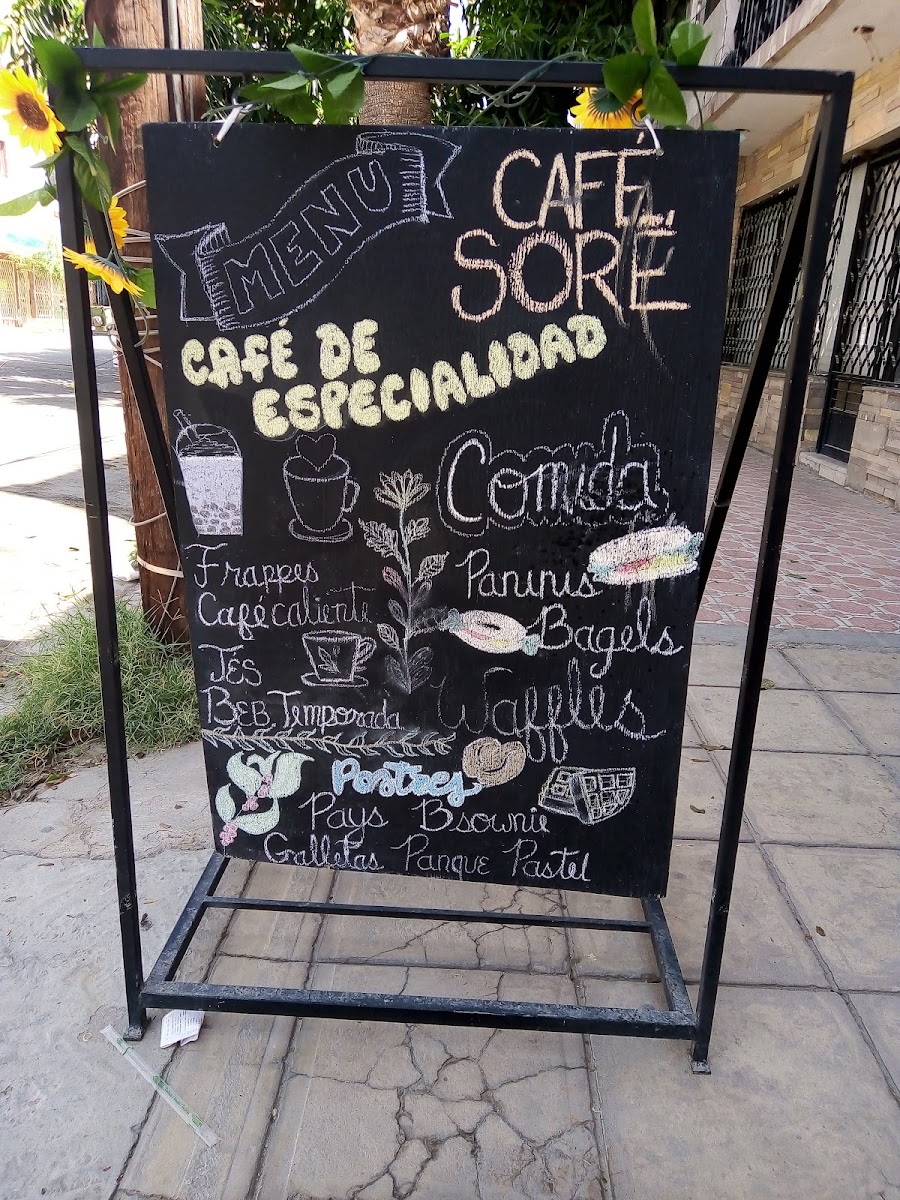 MENU
CAFÉ
SORÉ
CAFÉ DE
ESPECIALIDAD
Frappes
Café caliente
TÉS
BEB. Temporada
Comida
Paninis
Bagels
Waffles
Postres
Pays Brownie
Galletas Panque Pastel